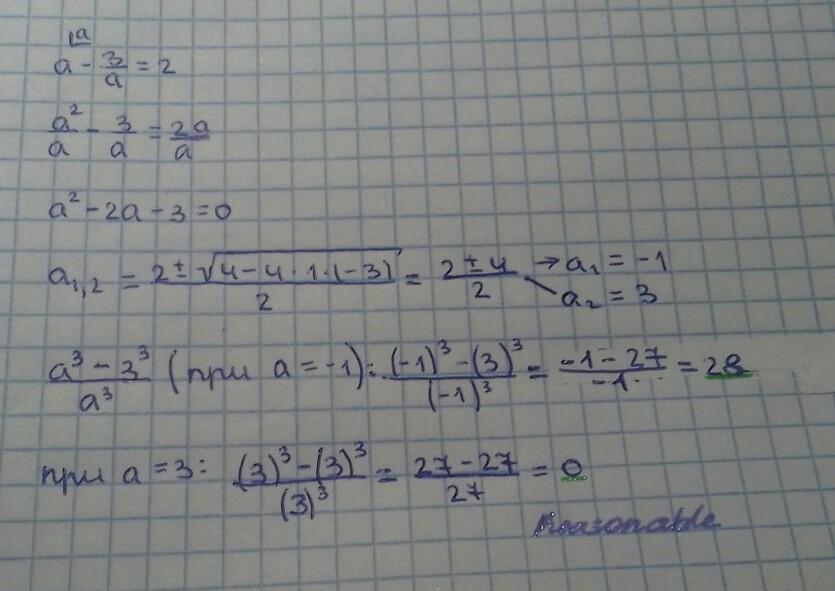 a
a - 3/a = 2
a²/a - 3/a = 2a/a
a² - 2a - 3 = 0
a₁,₂ = (2 ± √(4 - 4 · 1 · (-3)))/2 = (2 ± 4)/2 → a₁ = -1
a₂ = 3
(a³ - 3³)/a³ (при a = -1): ((-1)³ - (3)³)/(-1)³ = (-1 - 27)/-1 = 28
при a = 3: ((3)³ - (3)³)/(3)³ = (27 - 27)/27 = 0
Reasonable